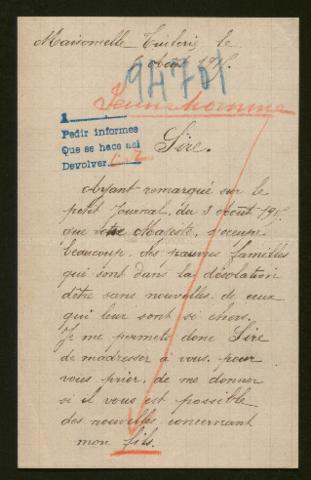 Maisonnelle Tuilerie le
août 1915.
94701
1
Pedir informes
Que se hace asi
Devolver
Sire.
Ayant remarqué sur le
petit Journal, du 3 août 1915.
que votre Majesté, s'occupe
beaucoup, des pauvres familles
qui sont dans la désolation
d'être sans nouvelles, de ceux
qui leur sont si chers.
Je me permets donc Sire
de m'adresser à vous, pour
vous prier, de me donner
si il vous est possible
des nouvelles, concernant
mon fils.